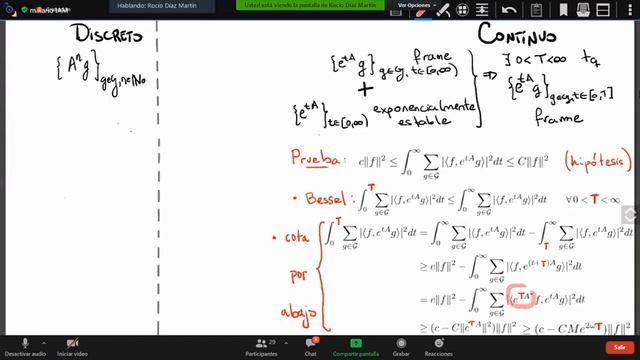 Hablando: Rocío Díaz Martín
Usted está viendo la pantalla de Rocío Díaz Martín
Ver Opciones
DISCRETO
CONTÍNUO
{Aⁿg}_{g∈G, n∈ℕ₀}
{e^{tA}g}_{g∈G, t∈[0,∞)} frame
+
{e^{tA}}_{t∈[0,∞)} exponencialmente estable
⇒ ∃ 0<T<∞ tq
{e^{tA}g}_{g∈G, t∈[0,T]}
frame
Prueba: c‖f‖² ≤ ∫₀^∞ ∑_{g∈G} |⟨f, e^{tA}g⟩|²dt ≤ C‖f‖² (hipótesis)
• Bessel: ∫₀^T ∑_{g∈G} |⟨f, e^{tA}g⟩|²dt ≤ ∫₀^∞ ∑_{g∈G} |⟨f, e^{tA}g⟩|²dt ∀0 < T < ∞
• cota por abajo
∫₀^T ∑_{g∈G} |⟨f, e^{tA}g⟩|²dt = ∫₀^∞ ∑_{g∈G} |⟨f, e^{tA}g⟩|²dt − ∫_T^∞ ∑_{g∈G} |⟨f, e^{tA}g⟩|²dt
≥ c‖f‖² − ∫₀^∞ ∑_{g∈G} |⟨f, e^{(t+T)A}g⟩|²dt
= c‖f‖² − ∫₀^∞ ∑_{g∈G} |⟨e^{TA*}f, e^{tA}g⟩|²dt
≥ (c − C‖e^{TA}‖²)‖f‖² ≥ (c − CMe^{2ωT})‖f‖²
Iniciar video
Seguridad
29
Participantes
Chat
Compartir pantalla
Grabar
Reacciones
Salir